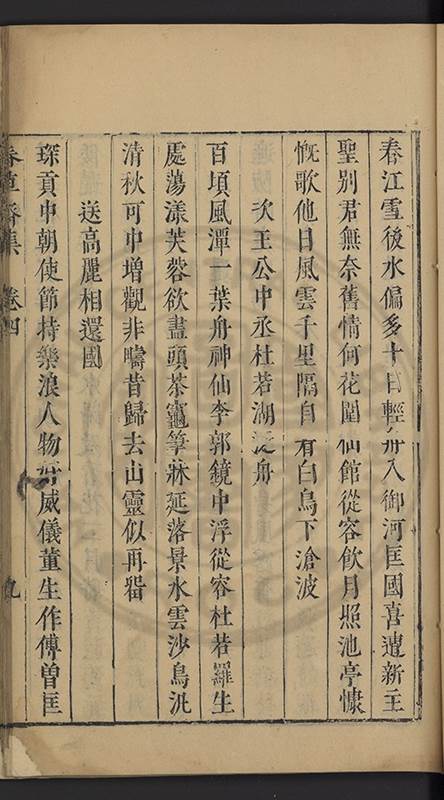 春江雪後水偏多十日輕舟入御河匡國喜遭新主
聖別君無奈舊情何花圍仙館從容飲月照池亭慷
慨歌他日風雲千里隔自有白鳥下滄波
次王公中丞杜若湖泛舟
百頃風潭一葉舟神仙李郭鏡中浮從容杜若羅生
處蕩漾芙蓉欲盡頭茶竈筆牀延落景水雲沙鳥汎
清秋可中增觀非疇昔歸去山靈似再畱
送高麗相還國
琛貢中朝使節持樂浪人物有威儀董生作傅曽匡
春草齋集 卷四 九